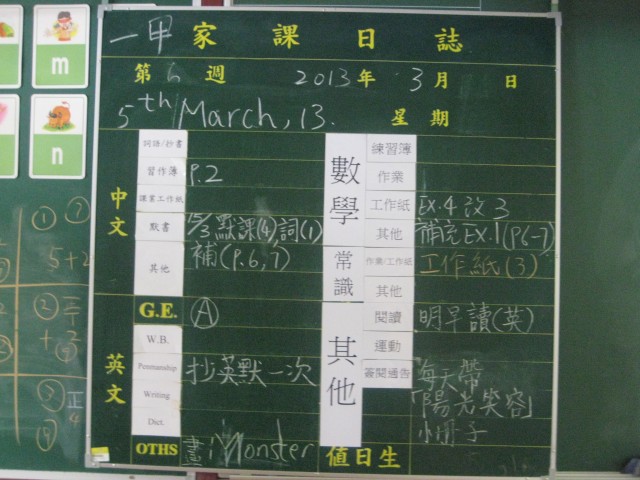 一甲 家課日誌
第 週 2013年 3月 日
5th March, 13. 星期
中文
詞語/抄書
習作簿 P.2
課業工作紙
默書 15/3默課(4),詞(1)
其他 補(P.6,7)
G.E. A
英文
W.B.
Penmanship 抄英默一次
Writing
Dict.
OTHS 畫iMonster
數學
練習簿
作業
工作紙 Ex.4 改3
其他 補充Ex.1(P.6-7)
常識
作業/工作紙 工作紙(3)
其他
其他
閱讀 明早讀(英)
運動
簽閱通告 每天帶
「陽光笑容」
小冊子
值日生
m
n
① ?
5+2
②
③